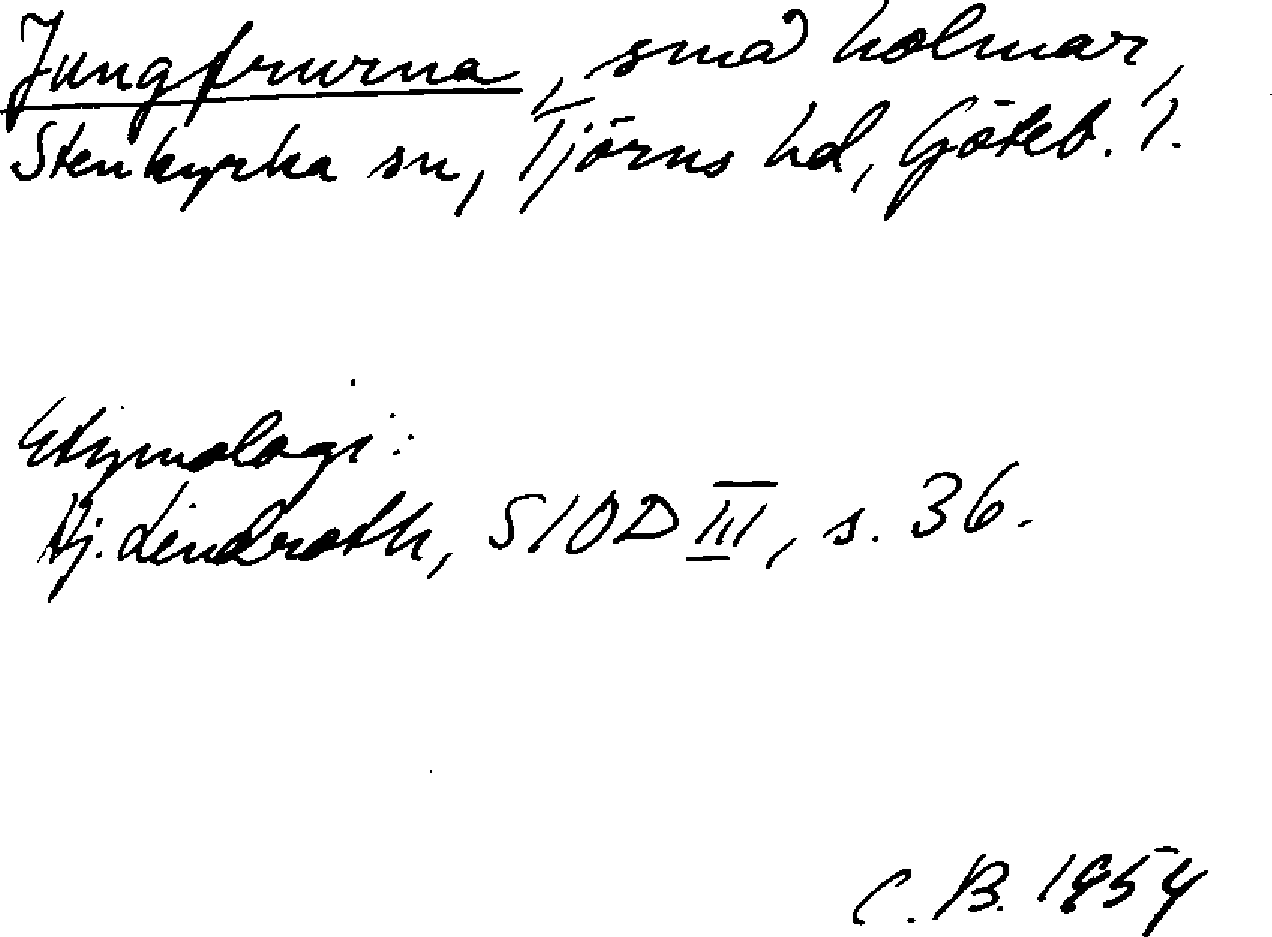 Jungfrurna, små holmar,
Stenkyrka sn, Tjörns hd, Göteb. l.
Etymologi:
Hj. Lindroth, SIOD III, s. 36.
C. B. 1954